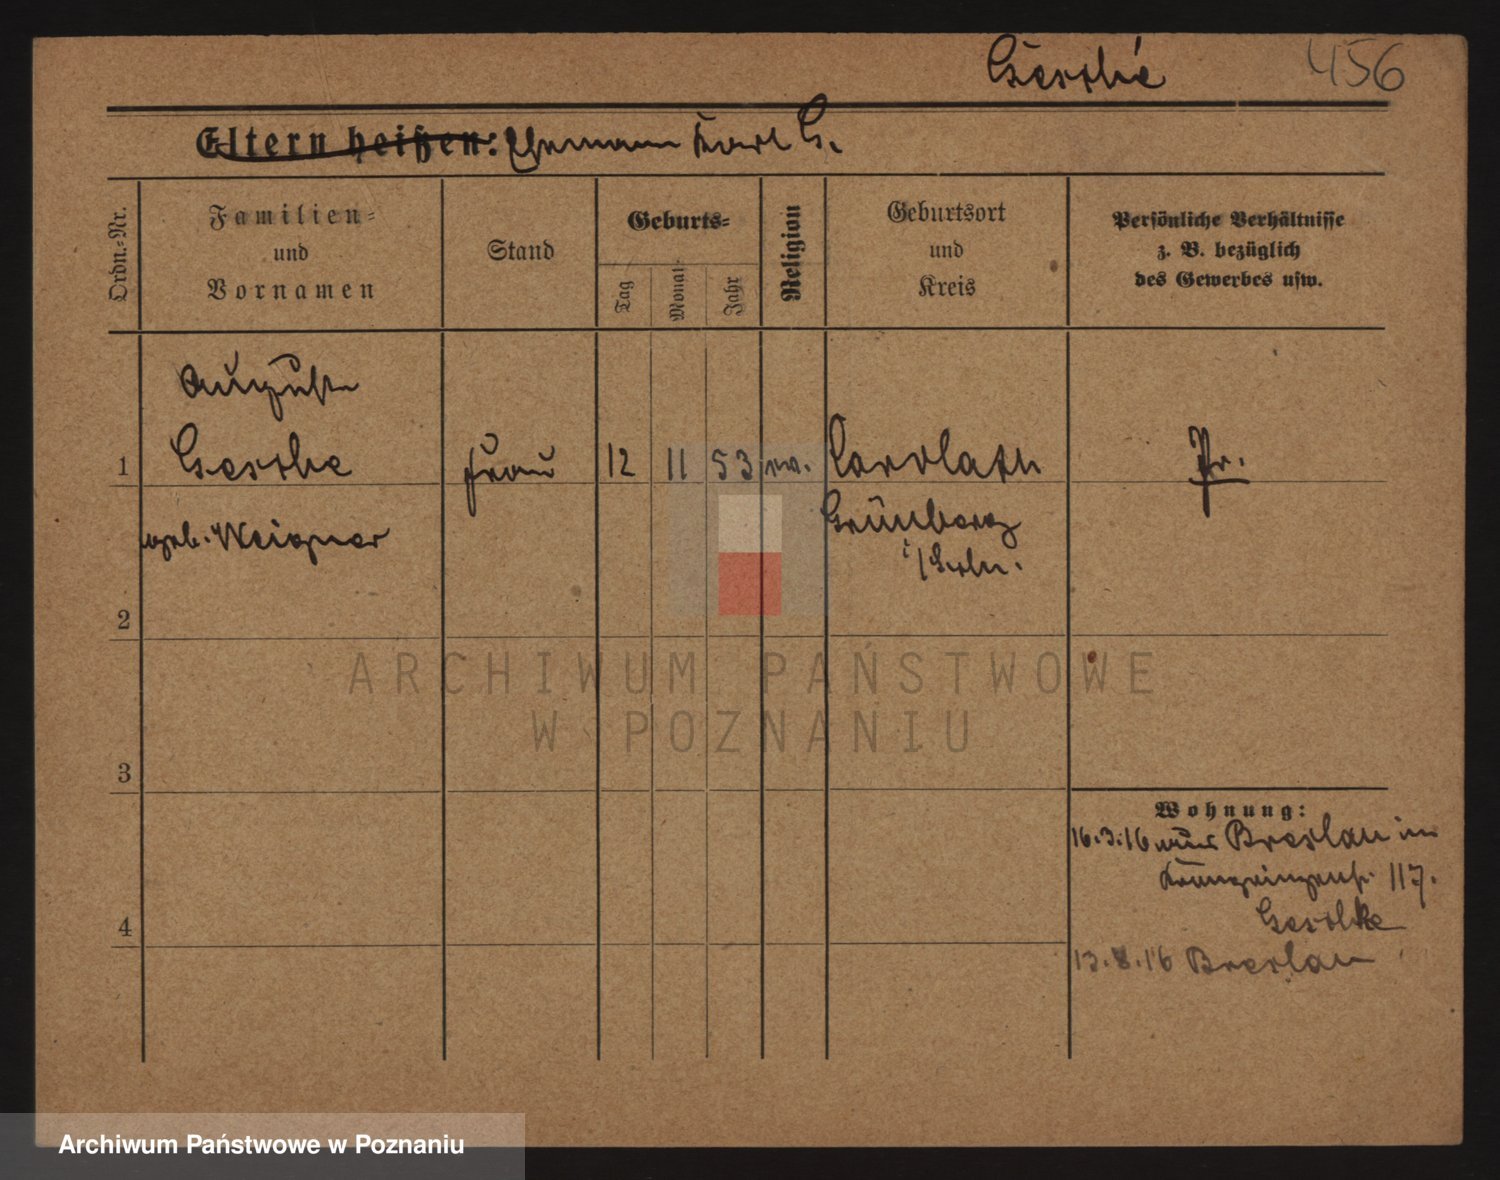 456
Eltern heißen: Ehemann Karl G.
Ordn.-Nr.
Familien-
und
Vornamen
Stand
Geburts-
Tag
Monat
Jahr
Religion
Geburtsort
und
Kreis
Persönliche Verhältnisse
z. B. bezüglich
des Gewerbes usw.
Auguste
1
Frau
12
11
53
ev.
Carolath
Pr.
geb. Weigner
Grünberg
i/Schl.
2
ARCHIWUM PAŃSTWOWE
W POZNANIU
3
Wohnung:
16.3.16 aus Breslau in
Kronprinzenstr. 117.
4
13.8.16 Breslau
Archiwum Państwowe w Poznaniu